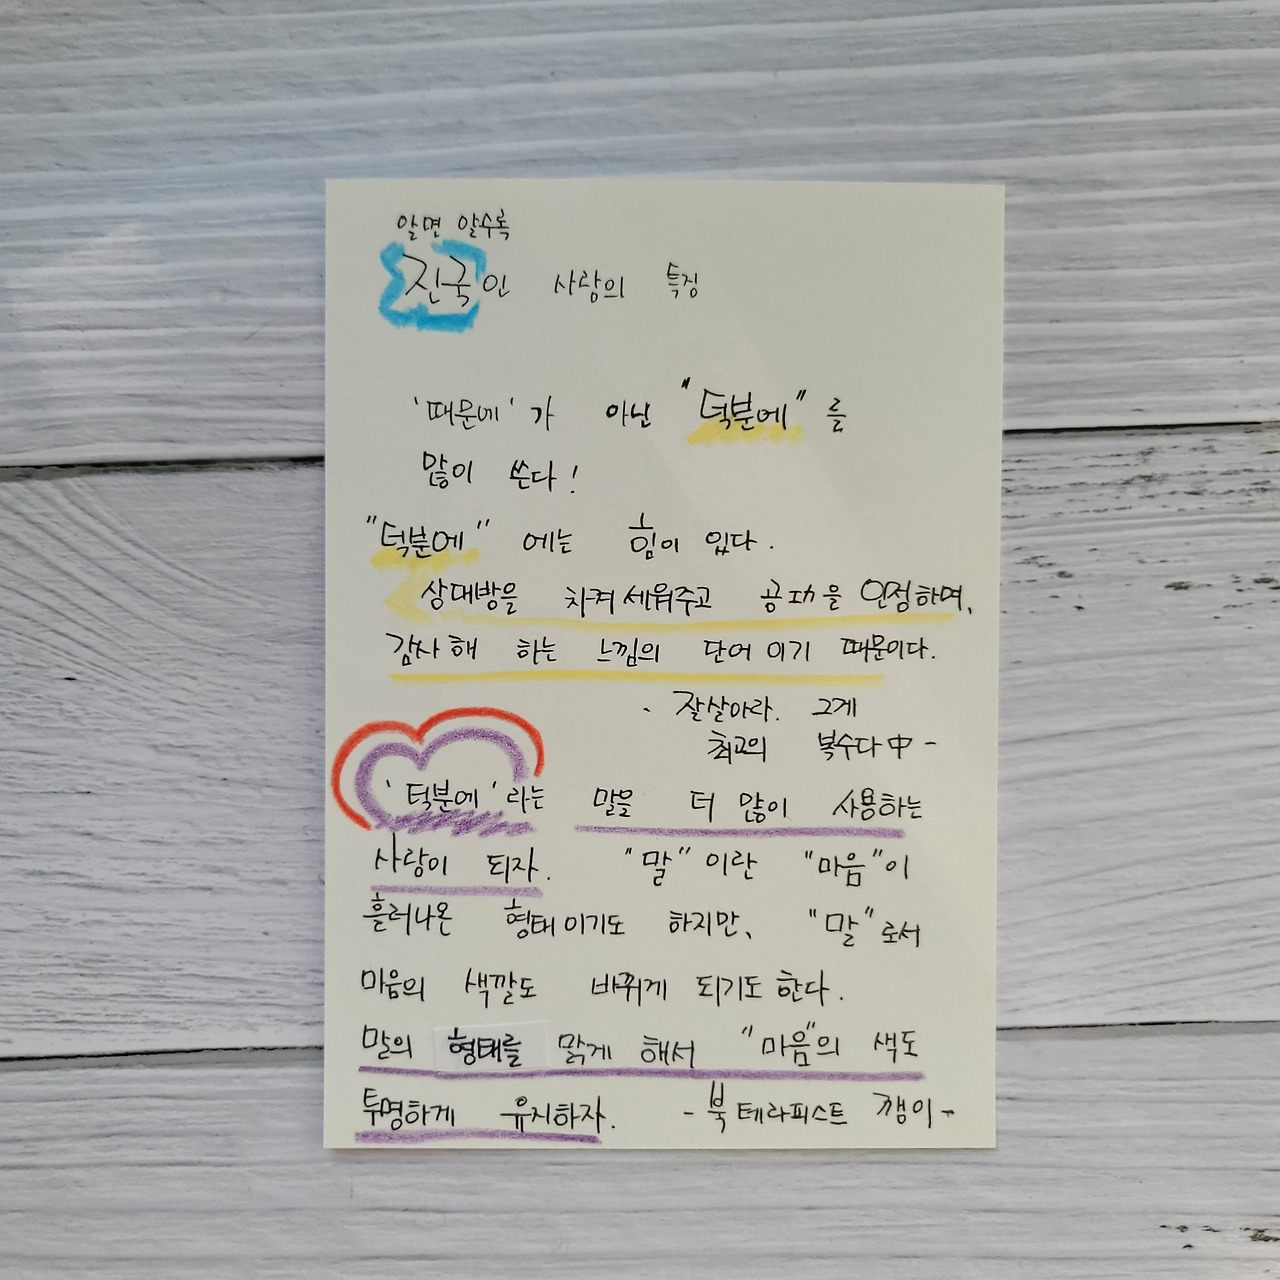 알면 알수록
진국인 사람의 특징
'때문에'가 아닌 "덕분에"를
많이 쓴다!
"덕분에"에는 힘이 있다.
상대방을 치켜세워주고 공功을 인정하며,
감사해 하는 느낌의 단어이기 때문이다.
- 잘살아라. 그게
최고의 복수다 中 -
'덕분에'라는 말을 더 많이 사용하는
사람이 되자. "말"이란 "마음"이
흘러나온 형태이기도 하지만, "말"로서
마음의 색깔도 바뀌게 되기도 한다.
말의 형태를 맑게 해서 "마음"의 색도
투명하게 유지하자. - 북테라피스트 깽이 -